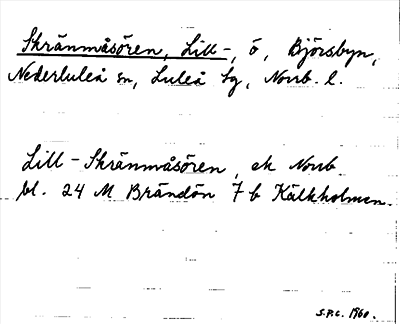 Skränmåsören, Lill-, ö, Björsbyn,
Nederluleå sn, Luleå tg, Norrb. l.
Lill-Skränmåsören, ek Norrb
bl. 24 M Brändön 7 b Kälkholmen.
S.P.C. 1960.